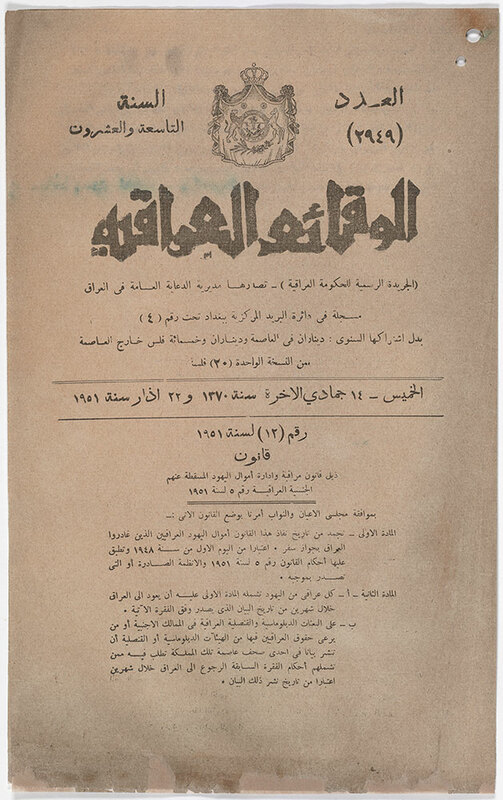 العدد
(٢٩٤٩)
السنة
التاسعة والعشرون
الوقائع العراقية
(الجريدة الرسمية للحكومة العراقية) ـ تصدرها مديرية الدعاية العامة في العراق
مسجلة في دائرة البريد المركزية ببغداد تحت رقم (٤)
بدل اشتراكها السنوي : ديناران في العاصمة وديناران وخمسمائة فلس خارج العاصمة
ثمن النسخة الواحدة (٢٠) فلسا
الخميس ـ ١٤ جمادي الاخرة سنة ١٣٧٠ و ٢٢ اذار سنة ١٩٥١
رقم (١٢) لسنة ١٩٥١
قانون
ذيل قانون مراقبة وادارة أموال اليهود المسقطة عنهم
الجنسية العراقية رقم ٥ لسنة ١٩٥١
بموافقة مجلسي الاعيان والنواب أمرنا بوضع القانون الآتي :ـ
المادة الاولى ـ تجمد من تاريخ نفاذ هذا القانون أموال اليهود العراقيين الذين غادروا
العراق بجواز سفر • اعتبارا من اليوم الاول من سنة ١٩٤٨ وتطبق
عليها أحكام القانون رقم ٥ لسنة ١٩٥١ والانظمة الصادرة أو التي
تصدر بموجبه •
المادة الثانية ـ أ ـ كل عراقي من اليهود تشمله المادة الاولى عليه أن يعود الى العراق
خلال شهرين من تاريخ البيان الذي يصدر وفق الفقرة الآتية •
ب ـ على البعثات الدبلوماسية والقنصلية العراقية في الممالك الاجنبية أو من
يرعى حقوق العراقيين فيها من الهيئات الدبلوماسية أو القنصلية أن
تنشر بيانا في احدى صحف عاصمة تلك المملكة تطلب فيه ممن
تشملهم أحكام الفقرة السابقة الرجوع الى العراق خلال شهرين
اعتبارا من تاريخ نشر ذلك البيان •